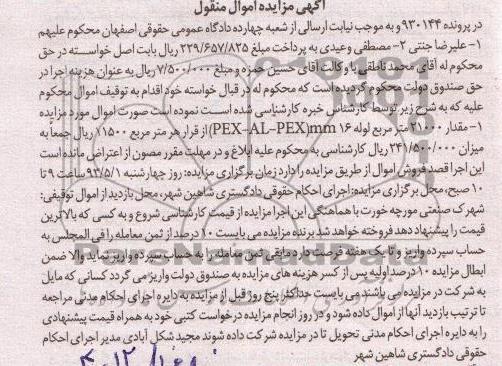 آگهی مزایده اموال منقول
در پرونده ۹۳۰۱۴۴ و به موجب نیابت ارسالی از شعبه چهارده دادگاه عمومی حقوقی اصفهان محکوم علیهم
۱- علیرضا جنتی ۲- مصطفی وعیدی به پرداخت مبلغ ۲۲۹/۶۵۷/۸۲۵ ریال بابت اصل خواسته در حق
محکوم له آقای محمد ناطقی با وکالت آقای حسین حمزه و مبلغ ۷/۵۰۰/۰۰۰ ریال به عنوان هزینه اجرا در
حق صندوق دولت محکوم گردیده است که محکوم له در قبال خواسته خود اقدام به توقیف اموال محکوم
علیه که به شرح زیر توسط کارشناس خبره کارشناسی شده است نموده است صورت اموال مورد مزایده
۱- مقدار ۲۱۰۰۰ متر مربع لوله ۱۶ PEX-AL-PEX)mm) از قرار هر متر مربع ۱۱۵۰۰ ریال جمعاً به
میزان ۲۴۱/۵۰۰/۰۰۰ ریال کارشناسی به محکوم علیه ابلاغ و در مهلت مقرر مصون از اعتراض مانده است
این اجرا قصد فروش اموال از طریق مزایده را دارد زمان برگزاری مزایده: روز چهارشنبه ۹۳/۵/۱ ساعت ۹ تا
۱۰ صبح، محل برگزاری مزایده: اجرای احکام حقوقی دادگستری شاهین شهر، محل بازدید از اموال توقیفی:
شهرک صنعتی مورچه خورت با هماهنگی این اجرا مزایده از قیمت کارشناسی شروع و به کسی که بالاترین
قیمت را پیشنهاد دهد فروخته خواهد شد برنده مزایده می بایست ۱۰ درصد از ثمن معامله را فی المجلس به
حساب سپرده واریز و تا یک هفته فرصت دارد مابقی ثمن معامله را به حساب سپرده واریز نماید والا ضمن
ابطال مزایده ۱۰ درصد اولیه پس از کسر هزینه های مزایده به صندوق دولت واریز می گردد کسانی که مایل
به شرکت در مزایده می باشند می بایست حداکثر پنج روز قبل از مزایده به دایره اجرای احکام مدنی مراجعه
تا ترتیب بازدید آنها از اموال داده شود و در روز انجام مزایده درخواست کتبی خود به همراه قیمت پیشنهادی
را به دایره اجرای احکام مدنی تحویل تا در مزایده شرکت داده شوند مجید شکل آبادی مدیر اجرای احکام
حقوقی دادگستری شاهین شهر